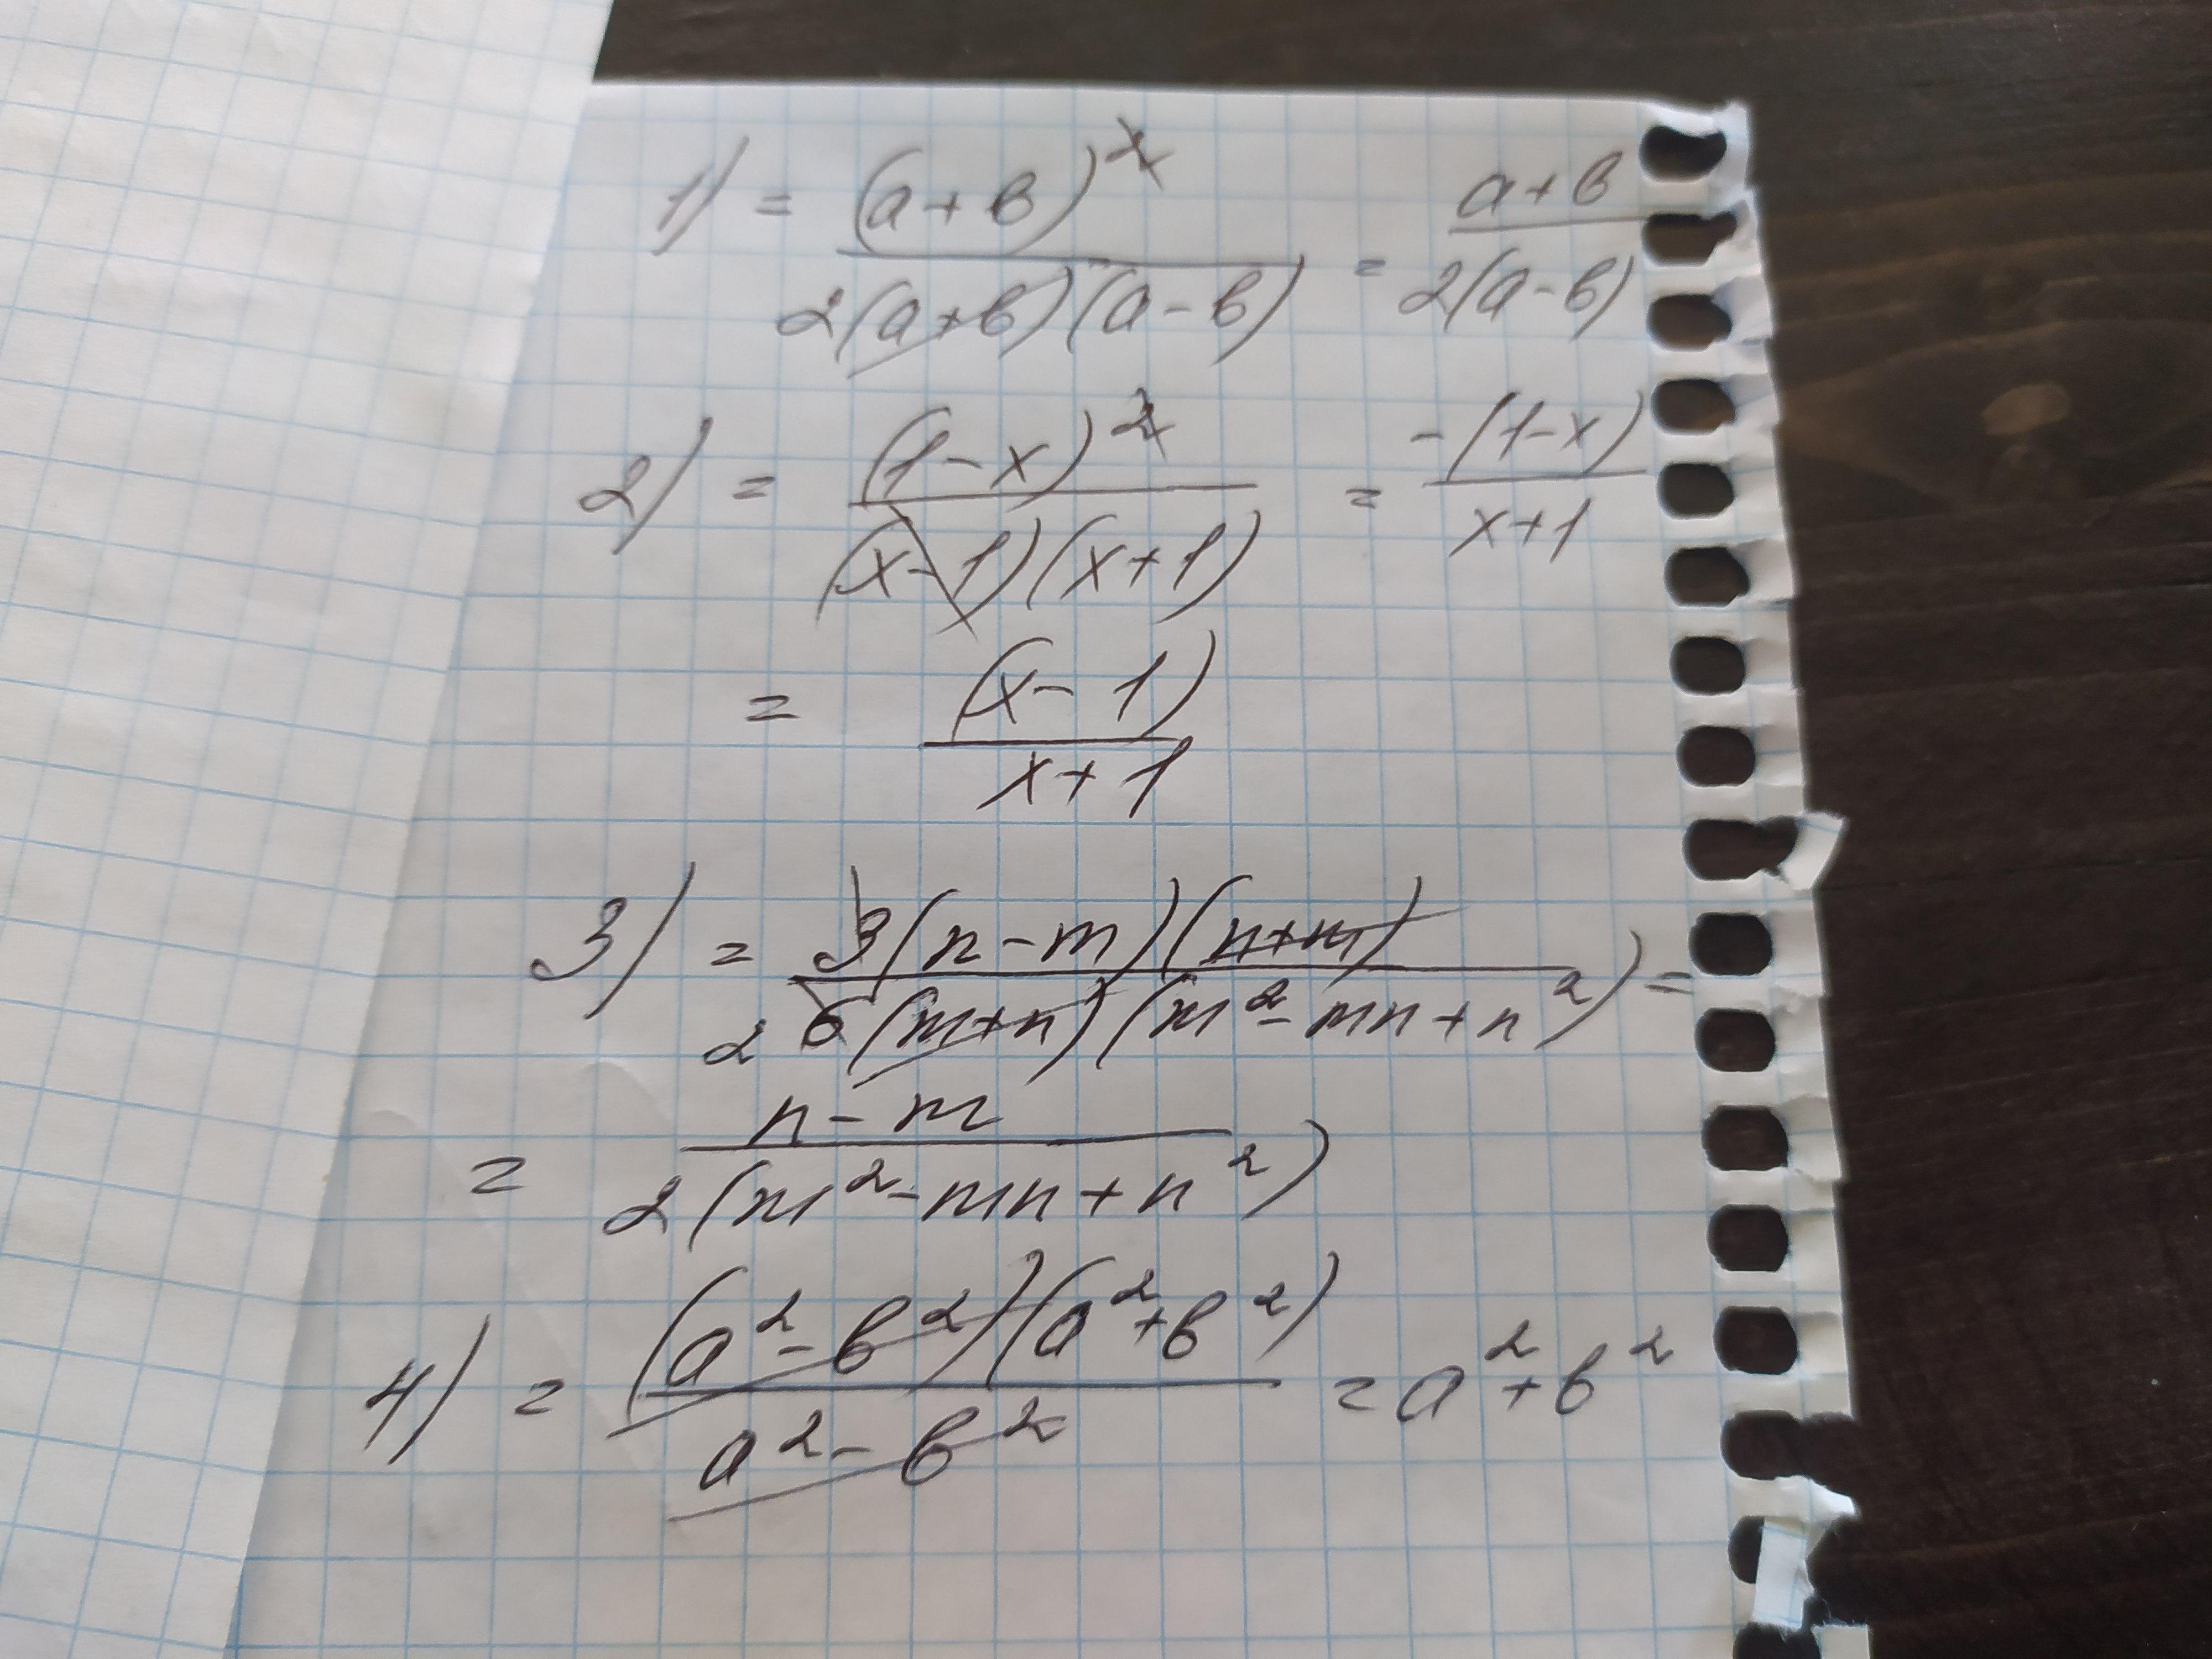 1) = (a+b)² / 2(a+b)(a-b) = a+b / 2(a-b)
2) = (1-x)² / (x-1)(x+1) = -(1-x) / x+1
= (x-1) / x+1
3) = 3(n-m)(n+m) / 2 6(m+n)(m²-mn+n²) =
= n-m / 2(m²-mn+n²)
4) = (a²-b²)(a²+b²) / a²-b² = a²+b²